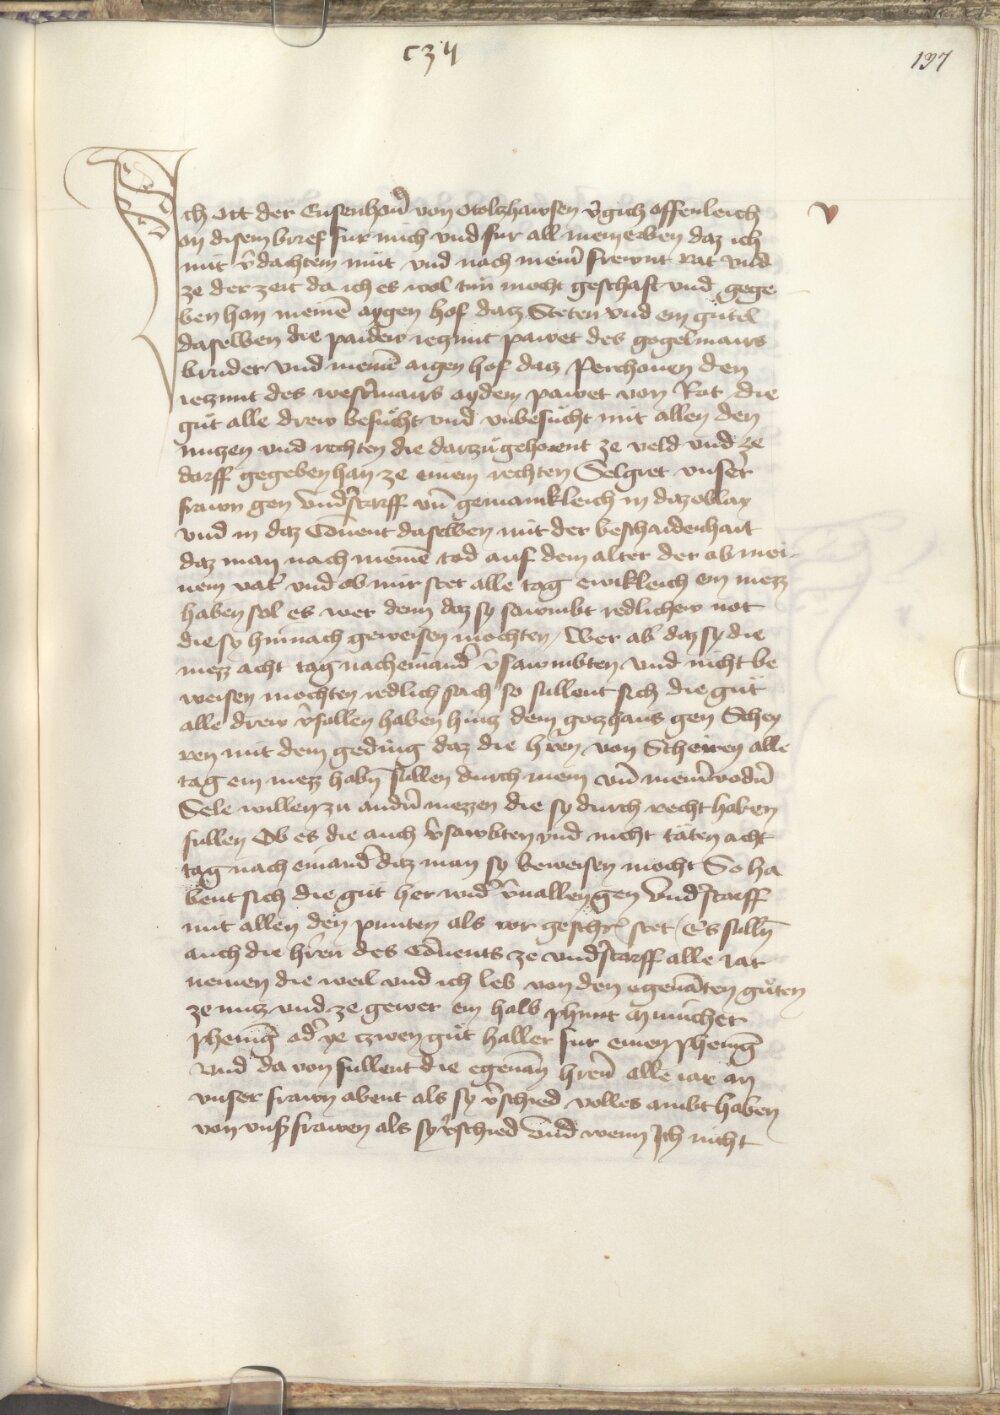 c3ij
197
Ich Ott der Eysenhouer von Otolczhawsen v̄gich offenleich
v
an disem brief fur mich vnd fur all mein erben daz ich
mit v̄dachtem müt vnd nach meiner frewnt rat vnd
ze der zeit da ich es wol tun mocht geschaft vnd gege
ben han meinē aygen hof datz Steten vnd ein gütel
daselben die paidew ieczunt pawet des gogelmairs
bruder vnd meinē aigen hof datz Perchouen den
ieczunt des mairs aydem pawet von Rot die
güt alle drew besücht vnd vnbesücht mit allen den
nuczen vnd rechten die darzü gehorent ze veld vnd ze
dorff gegeben han ze einem rechten Selgret vnser
frawn gen vnderstorff vn̄ gemainkleich in daz oblay
vnd in daz Conuent daselben mit der beschaidenhait
daz man nach meinē tod auf dem alter der ob mei-
nem vater vnd ob mir stet alle tag ewikleich ein mezz
haben sol es wer denn daz sy sawmbt redlichew not
die sy hinnach geweisen mochten / Wer aber daz sy die
mezz acht tag nach einander v̄sawmbten vnd nicht be
weisen mochten redlich sach so sullent sich die güt
alle drew v̄fallen haben hincz dem goczhaus gen Schey
ren mit dem geding daz die herren von Scheiren alle
tag ein mezz haben sullen durch mein vn̄ meiner vodern
Sele willen zu andern mezzen die sy durch recht haben
sullen Ob es die auch v̄sawbten vnd nicht täten acht
tag nach einander daz man sy beweisen mocht So ha
bent sich die güt her wider v̄uallen gen vnderstorff
mit allen den punten als vor geschr stet Es sullen
auch die herren des Conuents ze vnderstorff alle iar
nemen die weil vnd ich leb von den egenāten güten
ze nucz vnd ze gewer ein halb phunt Müncher
phening oder ye czwen güt haller fur einen phening
vnd da von sullent die egenan̄ herren alle iar an
vnser frawn abent als sy v̄schied volles ambt haben
von vnser frawen als sy v̄schied vnd wenn Ich nicht